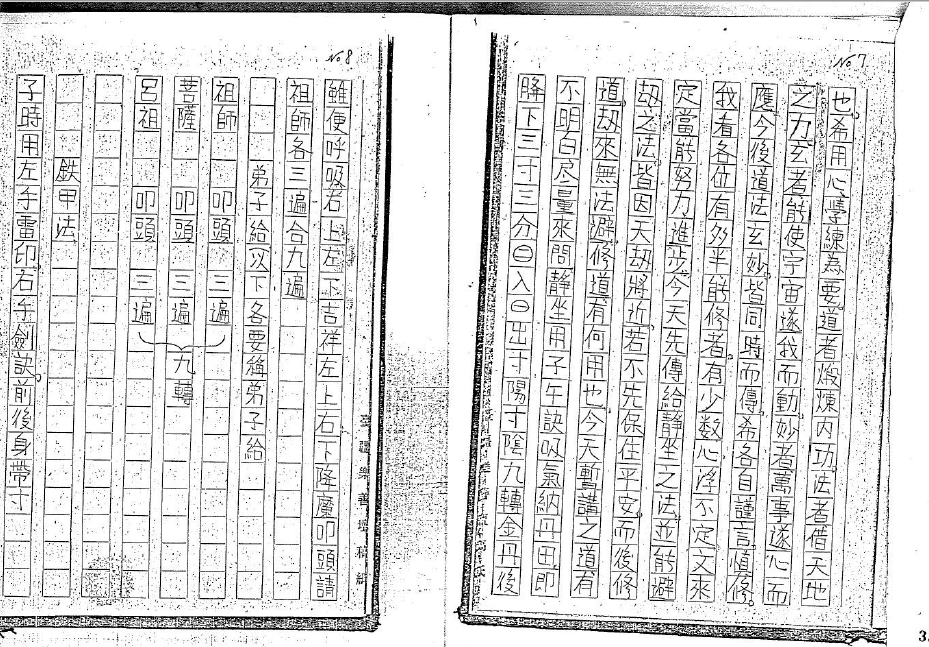 No 7
也。希用心學練為要。道者煅煉内功。法者借天地
之力。玄者能使宇宙遂我而動。妙者萬事遂心而
應。今後道法玄妙。皆同時而傳。希各自謹言慎修。
我者各位有多半能修者。有少数心浮不定。文來
定當能努力進步。今天先傳給静坐之法。並能避
劫之法。皆因天劫將近。若不先保住平安。而後修
道。劫來無法避。修道有何用也。今天暫講之道有
不明白尽量來問静坐用子午訣吸氣納丹田。即
臍下三寸三分㊀入㊀出寸陽寸陰九轉金丹後
No 8
雖便呼吸右上左下吉祥左上右下降魔叩頭請
祖師各三遍合九遍
弟子給以下各要稱弟子給
祖師 叩頭 三遍
菩薩 叩頭 三遍 九轉
呂祖 叩頭 三遍
鉄甲法
子時用左手雷印。右手劍訣。前後身帶寸
3.